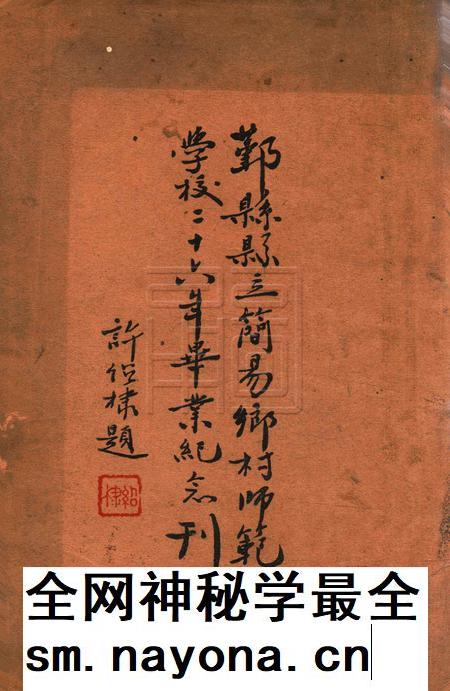 鄞縣縣立簡易鄉村師範
学校二十六年畢業紀念刊
許紹棣題
紹棣
全网神秘学最全
sm.nayona.cn